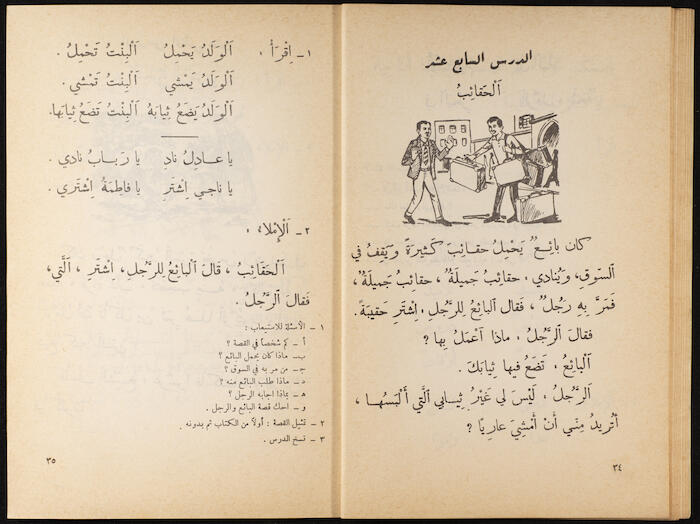 الدرس السابع عشر
اَلْحَقائِبُ
كان بائِعٌ يَحْمِلُ حقائِبَ كَثيرَةً وَيَقِفُ في
السّوقِ، وَيُنادي، حقائِبُ جَميلَةٌ، حقائِبُ جَميلَةٌ،
فَمَرَّ بِهِ رَجُلٌ، فَقال البائِعُ للرَّجُلِ، اِشْتَرِ حَقيبَةً.
فقالَ الرَّجُلُ، ماذا أعْمَلُ بِها؟
اَلْبائِعُ، تَضَعُ فيها ثِيابَكَ.
اَلرَّجُلُ، لَيْسَ لي غَيْرُ ثِيابي الَّتي أَلْبَسُها،
أتُريدُ مِنّي أنْ أمْشِيَ عارِيًا؟
٣٤
١ـ اِقْرَأ، اَلْوَلَدُ يَحْمِلُ اَلْبِنْتُ تَحْمِلُ.
اَلْوَلَدُ يَمْشي اَلْبِنْتُ تَمْشي.
اَلْوَلَدُ يَضَعُ ثِيابَهُ اَلْبِنْتُ تَضَعُ ثِيابَها.
يا عادِلُ نادِ يا رَبابُ نادي.
يا ناجي اِشْتَرِ يا فاطِمَةُ اِشْتَري.
٢ـ اَلْإمْلاء،
اَلْحَقائِبُ، قالَ اَلْبائِعُ لِلرَّجُلِ، اِشْتَرِ، اَلَّتي،
فَقالَ اَلرَّجُلُ.
١ ـ الأسئلة للاستيعاب :
أ ـ كم شخصاً في القصة ؟
ب ـ ماذا كان يحمل البائع ؟
ج ـ من مر به في السوق ؟
د ـ ماذا طلب البائع منه ؟
هـ ـ بماذا اجابه الرجل ؟
و ـ احك قصة البائع والرجل .
٢ ـ تمثيل القصة : أولاً من الكتاب ثم بدونه .
٣ ـ نسخ الدرس .
٣٥